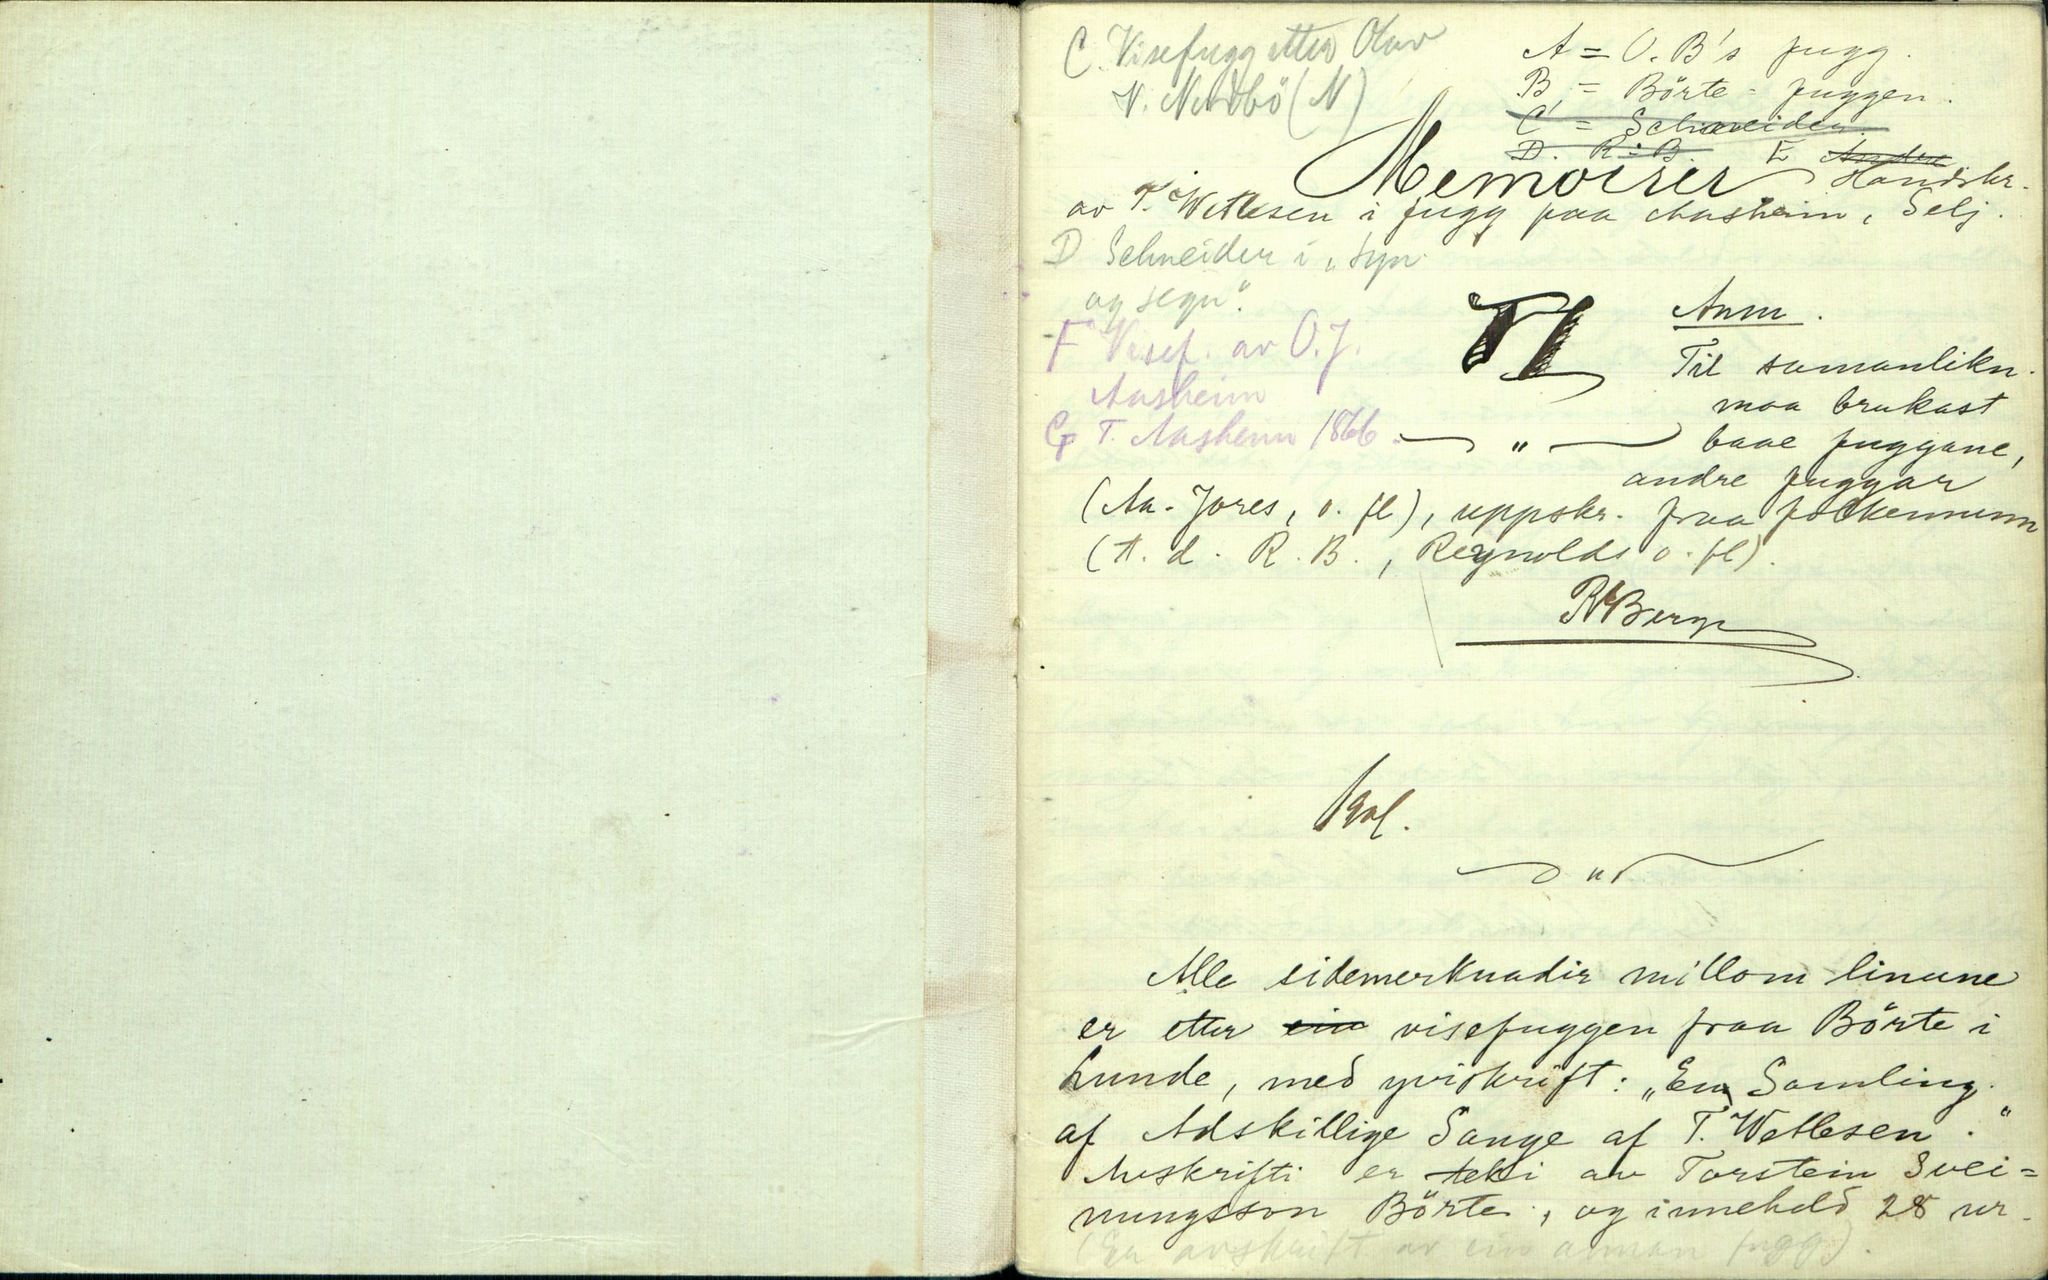 C. Visefugg etter Olav
N. Nordbö (N)
A = O. B's fugg.
B = Börte-fuggen.
C = Schneider.
D. R. B. E Andre
Memoirer Handskr.
av T. Wetlesen i fugg paa Aasheim, Selj.
D Schneider i "Syn
og segn".
F Visef. av O. J.
Aasheim
G T. Aasheim 1866.
Anm.
Til samanlikn.
maa brukast
— " — baae fuggane,
andre fuggar
(Aa-Jores, o. fl), uppskr. fraa folkemunn
(t. d. R. B., Reynolds o. fl).
R Berge
Alle sidemerknadir millom linune
er etter ein visefuggen fraa Börte i
Lunde, med yviskrift: "En Samling
af Adskillige Sange af T. Wetlesen."
Avskrifti er teki av Torstein Svei=
nungsson Börte, og inneheld 28 nr.
(Er avskrift av ein annan fugg).